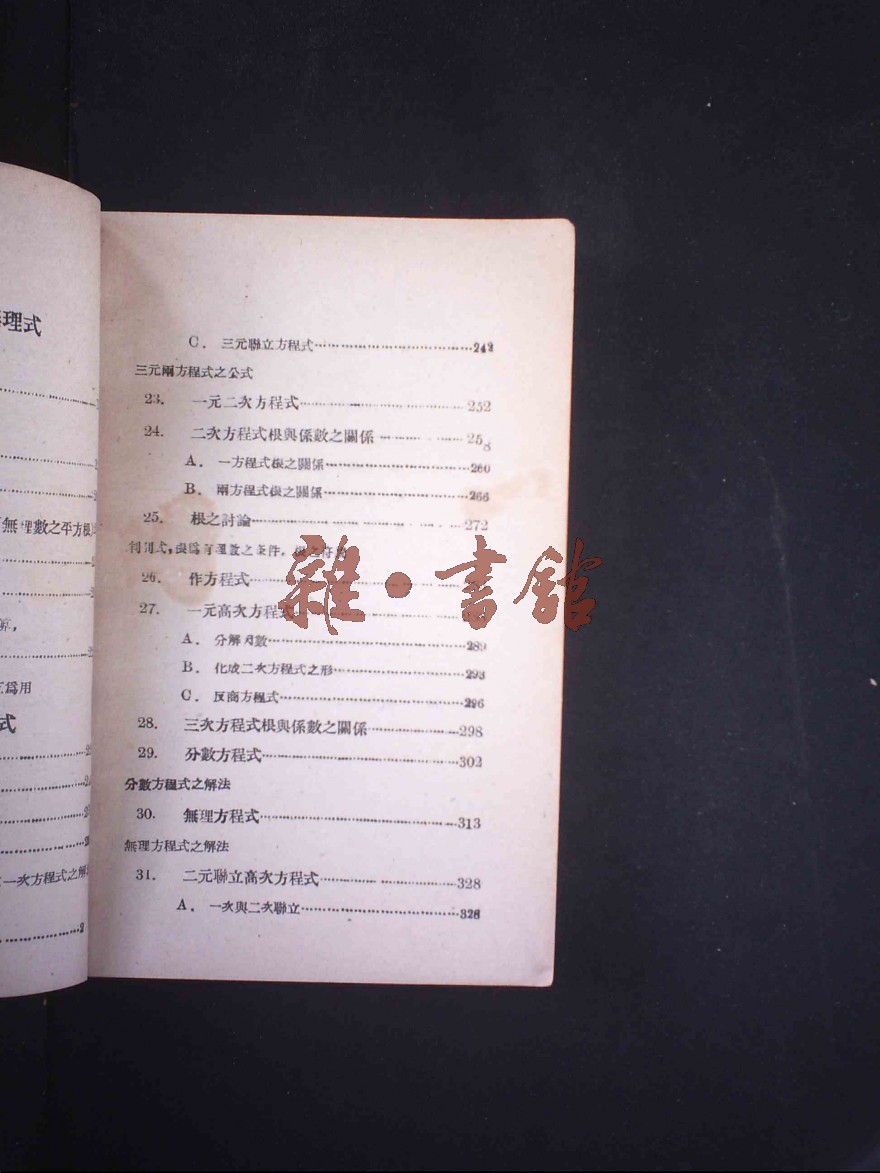 理式
無理數之平方根
爲用
式
一次方程式之解
C. 三元聯立方程式 242
三元兩方程式之公式
23. 一元二次方程式 252
24. 二次方程式根與係數之關係 258
A. 一方程式根之關係 260
B. 兩方程式根之關係 266
25. 根之討論 272
判別式,根爲有理數之条件,根之符號
26. 作方程式
27. 一元高次方程式
A. 分解因數 289
B. 化成二次方程式之形 293
C. 反商方程式 296
28. 三次方程式根與係數之關係 298
29. 分數方程式 302
分數方程式之解法
30. 無理方程式 313
無理方程式之解法
31. 二元聯立高次方程式 328
A. 一次與二次聯立 328
雜·書館